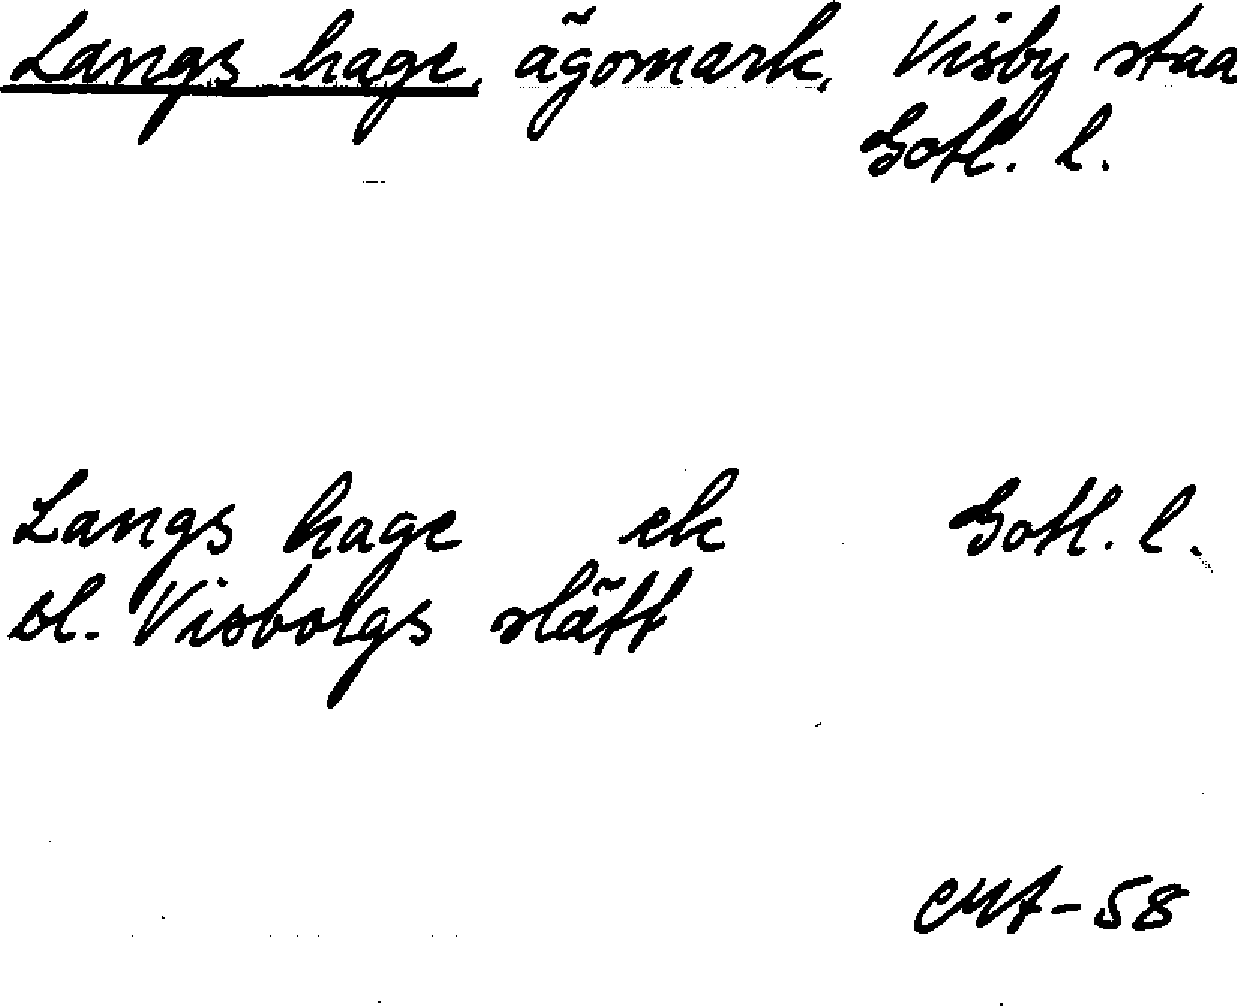 Langs hage, ägomark, Visby staa
Gotl. l.
Langs hage ek Gotl. l.
bl. Visbolgs slätt
CMA-58